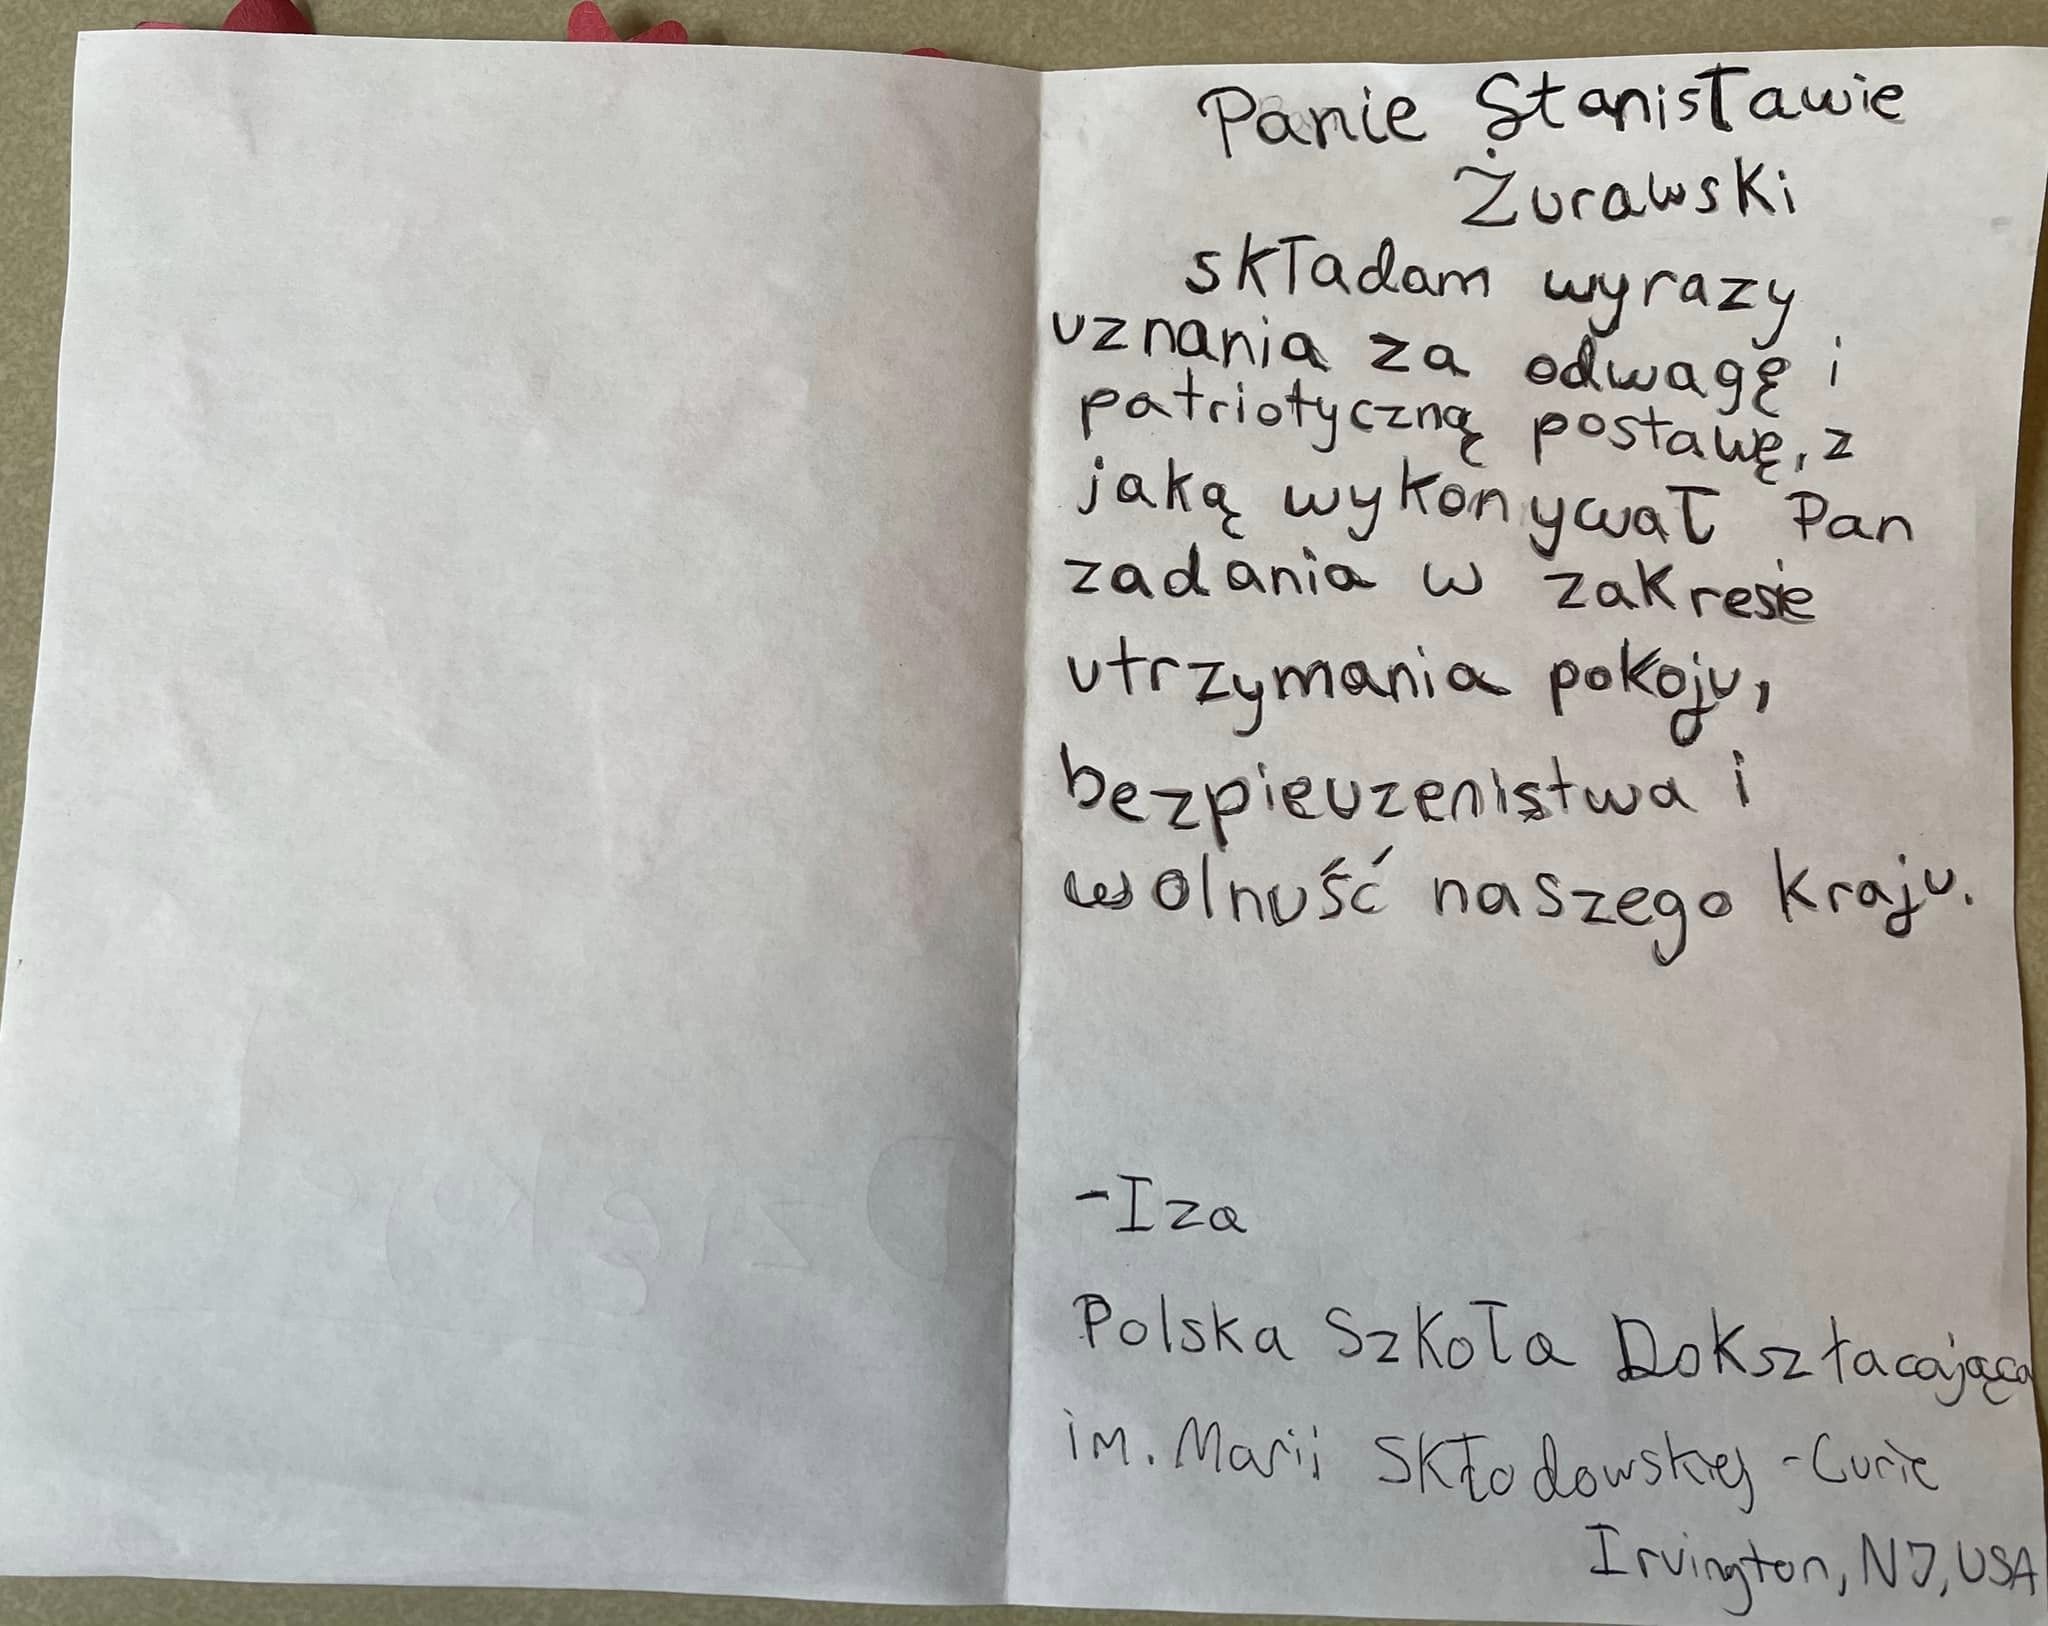 Panie Stanisławie
Żurawski
składam wyrazy
uznania za odwagę i
patriotyczną postawę, z
jaką wykonywał Pan
zadania w zakresie
utrzymania pokoju,
bezpieuzenistwa i
wolnuść naszego kraju.
-Iza
Polska Szkoła Dokształacająca
im. Marii Skłodowskiej-Curie
Irvington, NJ, USA
Dziękuję!